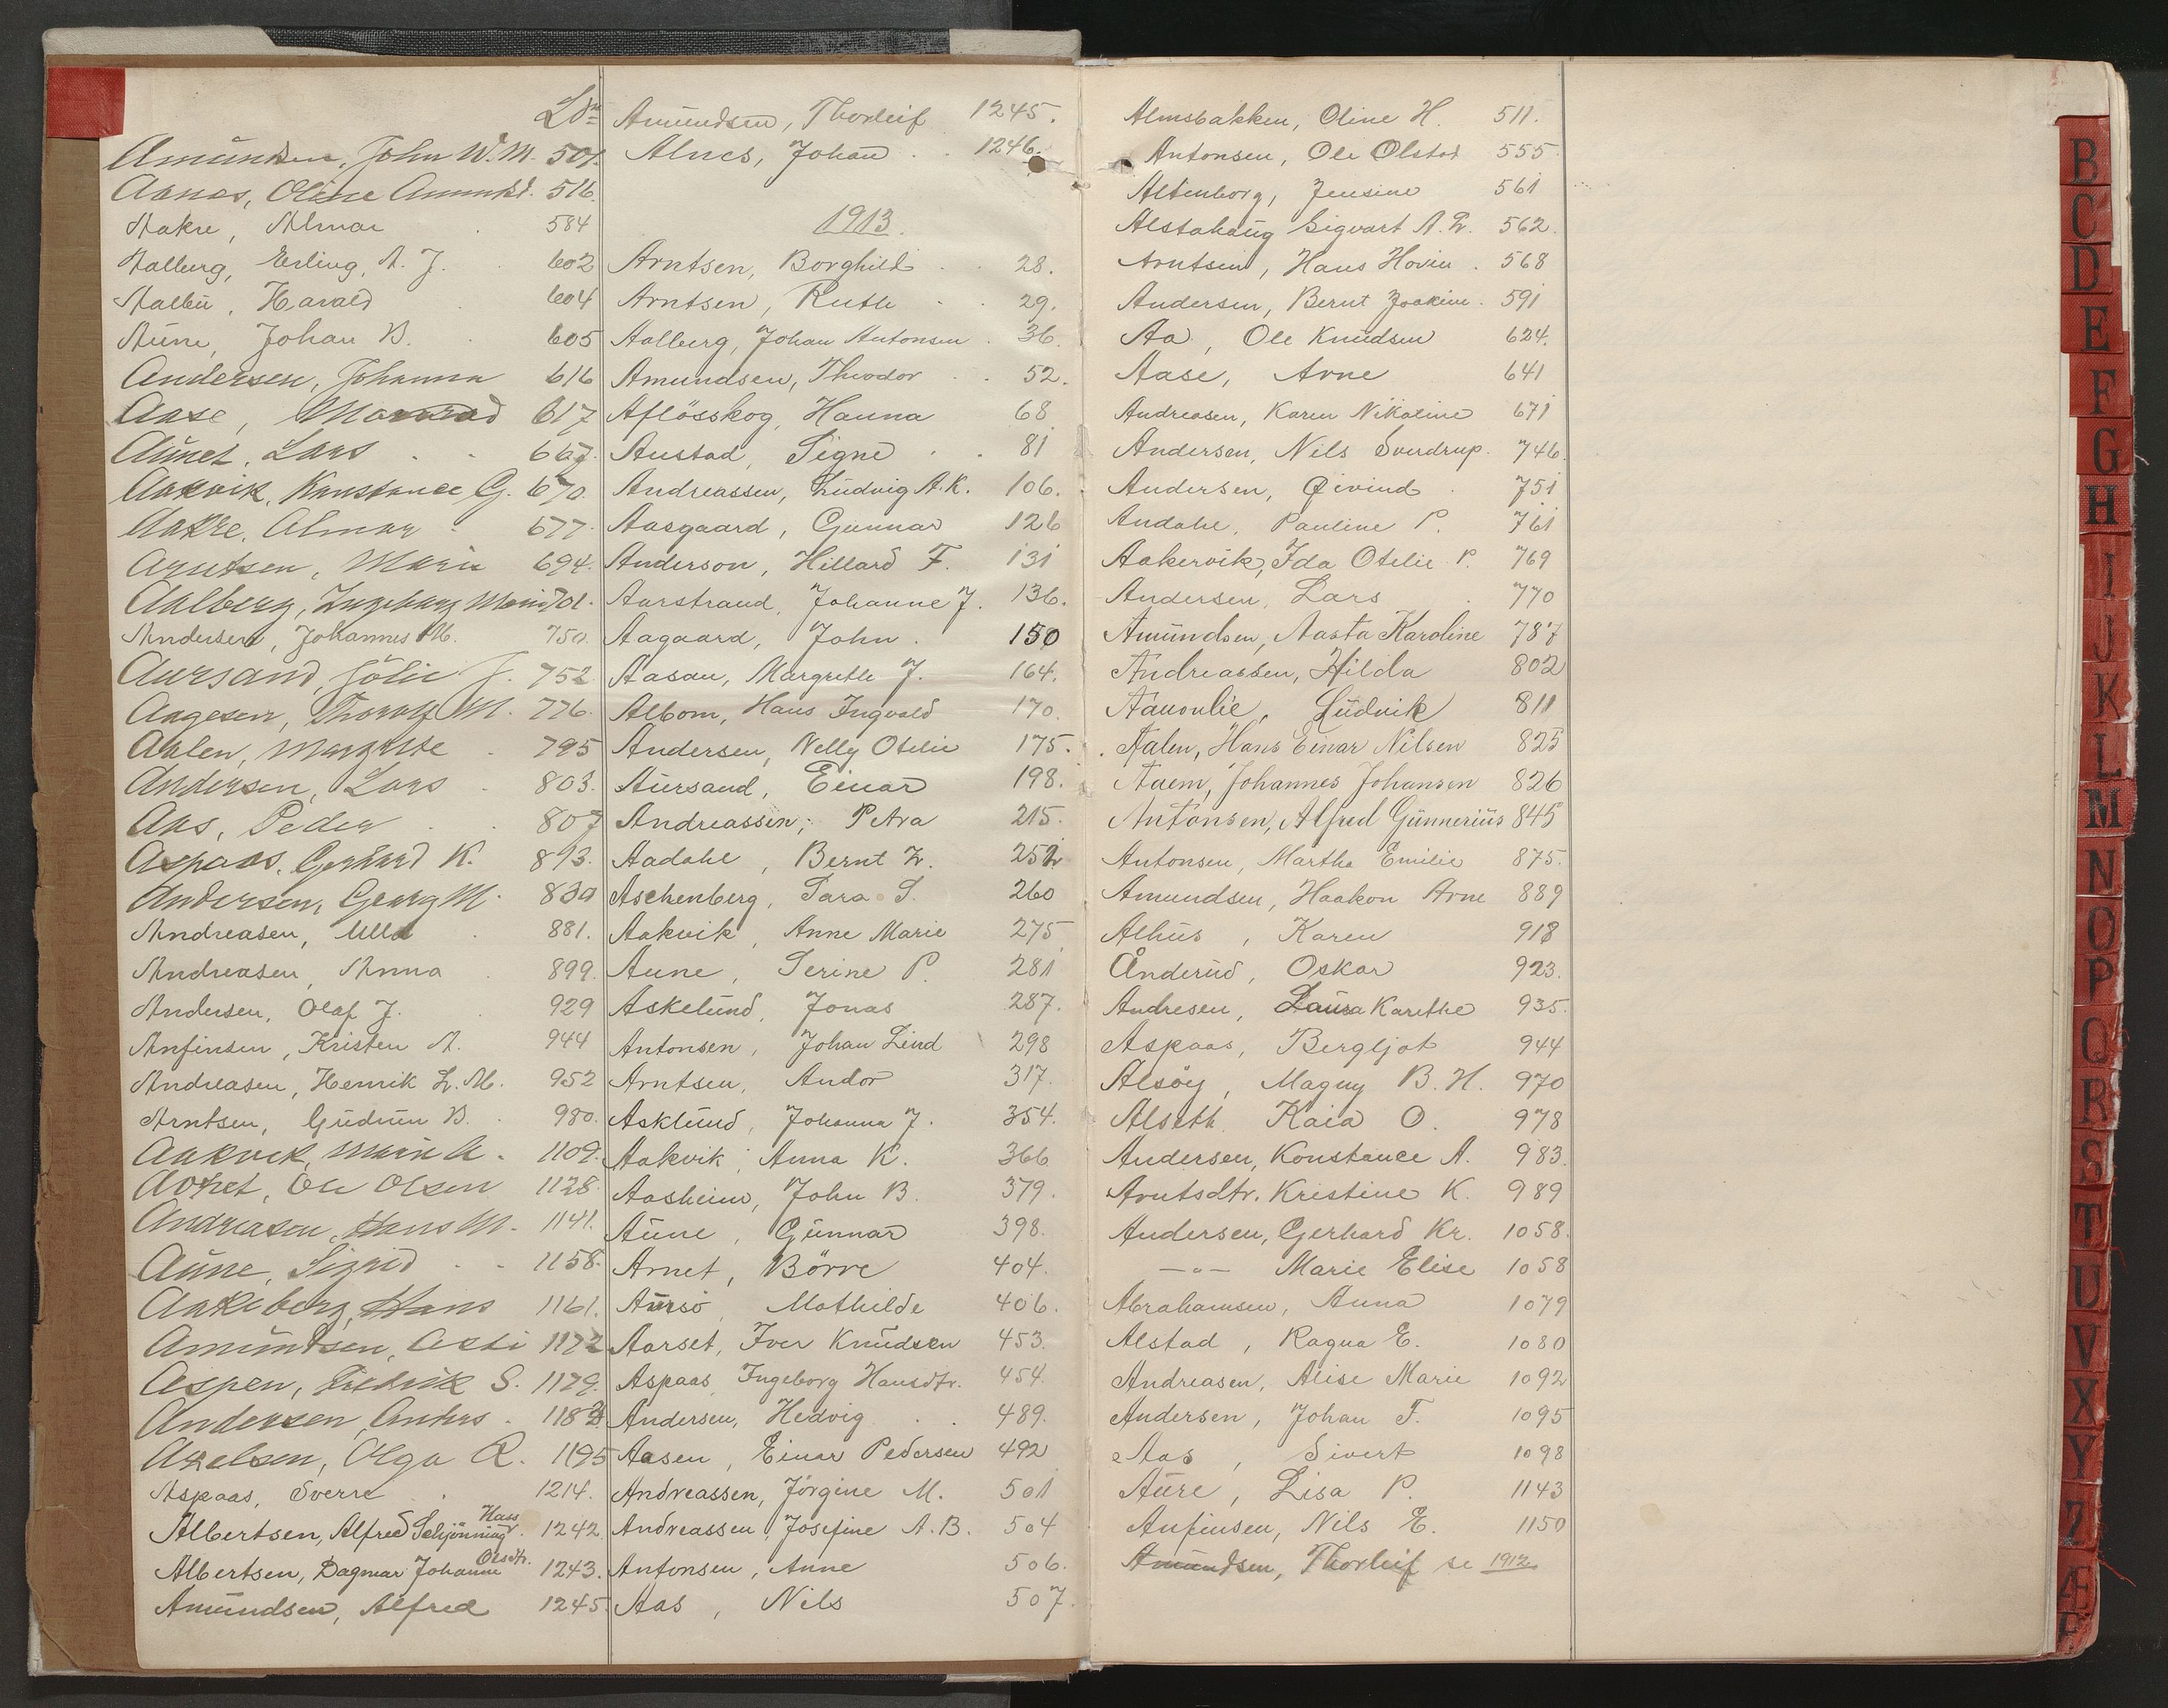 LNr
Amundsen, John W. M. 501.
Aanes, Oline Amundsd. 516.
Aakre, Almar 584
Aalberg, Erling, A. J. 602
Aalbu, Harald 604
Aune, Johan B. 605
Andersen, Johanna 616
Aase, 617
Aunet, Lars 667.
Aakvik, Konstance G. 670.
Aakre, Almar 677.
Arntsen, Marie 694.
Aalberg, Ingeborg Marie 701.
Andersen, Johannes M. 750.
Aursand, Jölie J. 752
Aagesen, Thorolf M. 776.
Aalen, Margrete 795
Andersen, Lars 803.
Aas, Peder 807
Aspaas, Gerhard K. 813.
Andersen, Georg M. 830
Andreasen, Ulla 881.
Andreasen, Anna 899.
Andersen, Olaf J. 929
Anfinsen, Kristen A. 944
Andreasen, Henrik L. M. 952
Arntsen, Gudrun B. 980.
Aakvik, Marie A. 1109.
Ole Olsen 1128.
Andreasen, Hans M. 1141.
Aune, Sigrid 1158.
Aakeberg, Hans 1161.
Amundsen, 1172
Aspen, Fredrik S. 1179.
Andersen, Anders 1183
Axelsen, Olga R. 1195
Aspaas, Sverre 1214.
Albertsen, Alfred Schjönning Hass 1242
Albertsen, Dagmar Johanne Olsdtr. 1243.
Amundsen, Alfred 1245.
Amundsen, Thorleif 1245.
Alnes, Johan 1246.
1913.
Arntsen, Borghild 28.
Arntsen, Ruth 29.
Aalberg, Johan Antonsen 36.
Amundsen, Theodor 52.
Aflösskog, Hanna 68
Austad, Signe 81
Andreassen, Ludvig A. K. 106.
Aasgaard, Gunnar 126
Anderson, Hillard F. 131
Aarstrand, Johanne J. 136.
Aagaard, John 150
Aasan, Margrethe J. 164.
Albom, Hans Ingvald 170.
Andersen, Nelly Otelie 175.
Aursand, Einar 198.
Andreassen, Petra 215.
Aadahl, Bernt L. 252
Aschenberg, Sara S. 260
Aakvik, Anne Marie 275
Aune, Serine P. 281
Askelund, Jonas 287.
Antonsen, Johan Lind 298
Arntsen, Andor 317.
Asklund, Johanna J. 354.
Aakvik, Anna K. 366
Aasheim, John B. 379.
Aune, Gunnar 398.
Arnet, Börre 404.
Aursö Mathilde 406.
Aarset, Iver Knudsen 453.
Aspaas, Ingeborg Hansdtr. 454.
Andersen, Hedvig 489.
Aasen, Einar Pedersen 492
Andreassen, Jörgine M. 501
Andreassen, Josefine A. B. 504
Antonsen, Anne 506.
Aas, Nils 507.
Almsbakken, Oline H. 511.
Antonsen, Ole Olstad 555
Altenborg, Jensine 561
Alstahaug Sigvart A. L. 562.
Arntsen, Hans Hovin 568
Andersen, Bernt Joakim 591
Aa, Ole Knudsen 624.
Aase, Arne 641
Andreasen, Karen Nikoline 671
Andersen, Nils Sverdrup. 746.
Andersen, Øivind 751
Andahl, Pauline P. 761
Aakervik, Ida Otelie P. 769
Andersen, Lars 770
Amundsen, Aasta Karoline 787
Andreassen, Hilda 802
Aauoulie, Ludvik 811
Aalen, Hans Einar Nilsen 825
Aaem, Johannes Johansen 826
Antonsen, Alfred Gunnerius 845
Antonsen, Martha Emilie 875.
Amundsen, Haakon Arne 889
Alhus, Karen 918
Ånderud, Oskar 923.
Andresen, Laura Karethe 935.
Aspaas, Bergljot 944
Alsöy, Magny B. H. 970
Alseth, Kaia O. 978
Andersen, Konstance A. 983
Arntsdtr. Kristine K. 989
Andersen, Gerhard Kr. 1058.
—"— Marie Elise 1058
Abrahamsen, Anna 1079
Alstad, Ragna E. 1080
Andreasen, Alise Marie 1092
Andersen, Johan F. 1095
Aas, Sivert 1098
Aure, Lisa P. 1143
Anfinsen, Nils E. 1150
Amundsen, Thorleif se 1912
B
C
D
E
F
G
H
I
J
K
L
M
N
O
P
Q
R
S
T
U
V
X
Y
Z
Æ